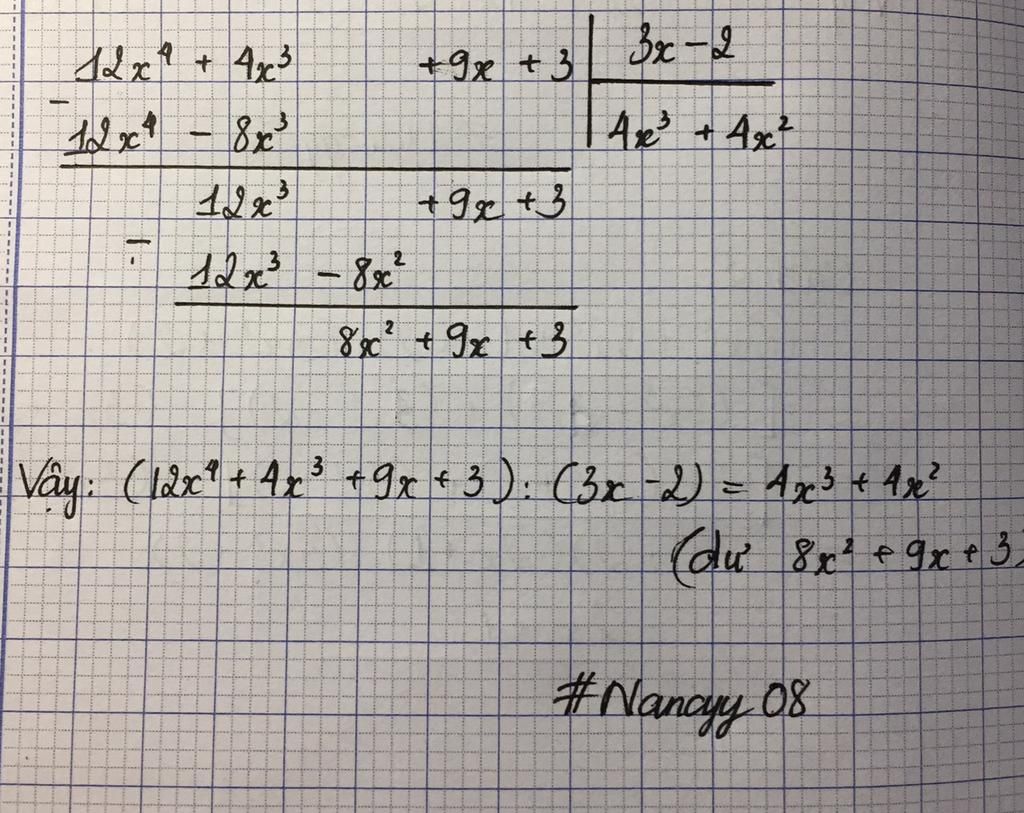 12x⁴ + 4x³ + 9x + 3 | 3x - 2
- 12x⁴ - 8x³ | 4x³ + 4x²
12x³ + 9x + 3
- 12x³ - 8x²
8x² + 9x + 3
Vậy: (12x⁴ + 4x³ + 9x + 3) : (3x - 2) = 4x³ + 4x²
(dư 8x² + 9x + 3)
#Nancyy 08